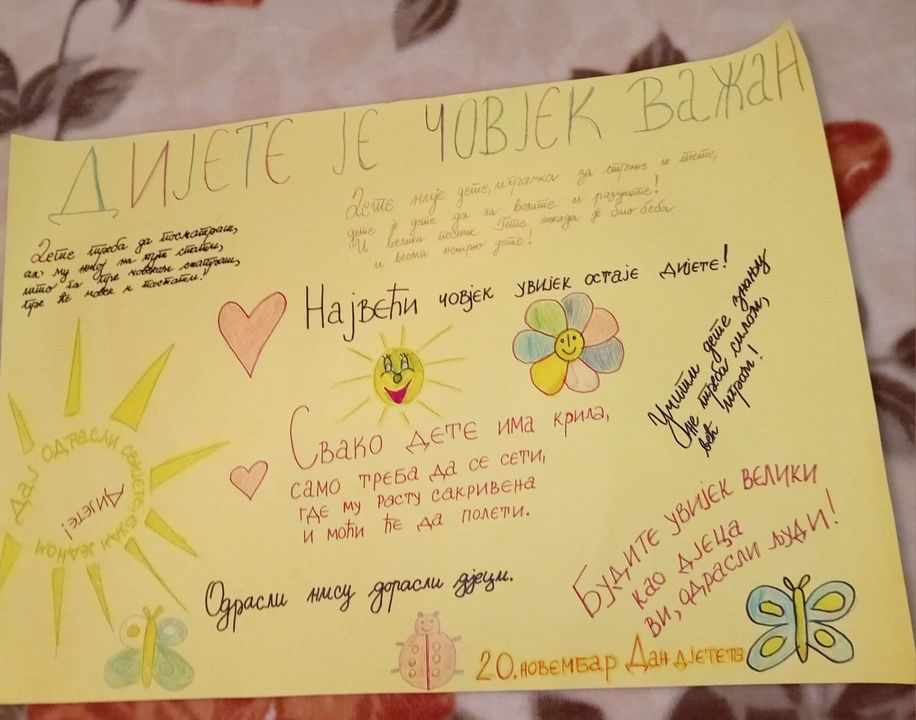 ДИЈЕТЕ ЈЕ ЧОВЈЕК ВАЖАН
Дете није дете, играчка за стрине и тете,
дете је дете да га волите и разумете!
И велики песник Гете некада је био беба
и веома немирно дете!
Дете треба да посматраш,
ал му некој на пут стати,
што га пре човеком сматраш,
пре ће човек и постати!
Највећи човјек увијек остаје дијете!
Учити дете знању
не треба силом,
већ игром!
Свако дете има крила,
само треба да се сети,
где му расту сакривена
и моћи ће да полети.
Дај одрасли свијете, буди једном
Дијете!
Одрасли нису дорасли дјеци.
Будите увијек велики
као дјеца
ви, одрасли људи!
20. новембар Дан дјетета